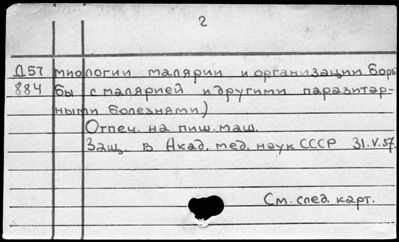 2
Д57 миологии малярии и организации борь
884 бы с малярией и другими паразитар-
ными болезнями)
Отпеч. на пиш. маш.
Защ. в Акад. мед. наук СССР 31.V.57.
См. след. карт.